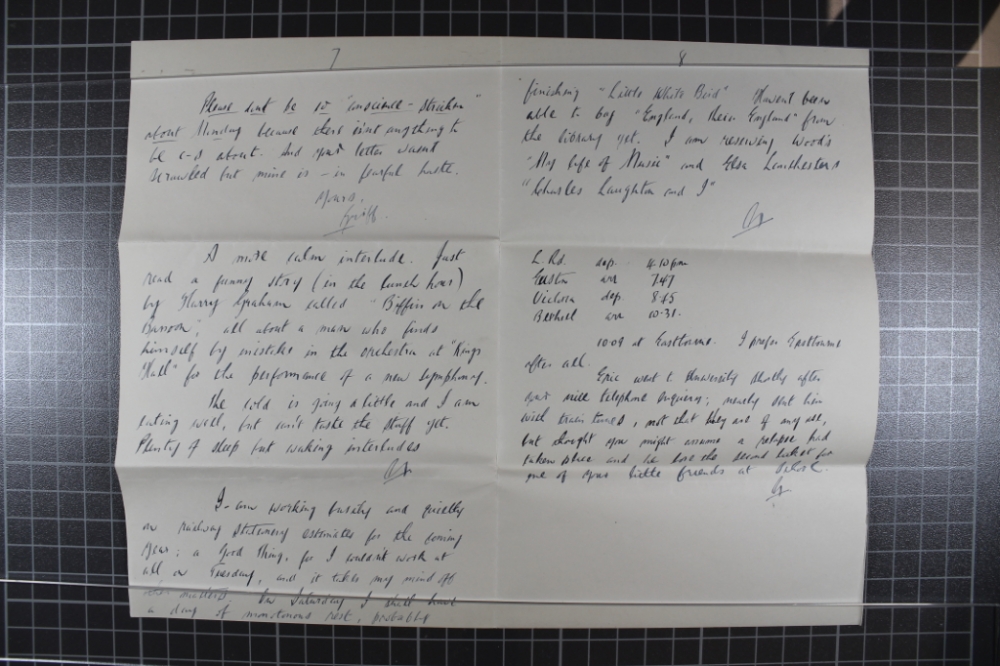 7
Please dont be so "conscience-stricken"
about Monday because there isnt anything to
be c-s about. And your letter wasnt
scrawled but mine is – in fearful haste.
Yours,
Griff.
A more calm interlude. Just
read a funny story (in the lunch hour)
by Harry Graham called "Biffin on the
Bassoon", all about a man who finds
himself by mistake in the orchestra at "Kings
Hall" for the performance of a new symphony.
The cold is going a little and I am
eating well, but can't taste the stuff yet.
Plenty of sleep but waking interludes
I am working busily and quietly
on railway stationery estimates for the coming
year; a good thing, for I couldn't work at
all on Tuesday, and it takes my mind off
other matters. On Saturday I shall have
a day of monotonous rest, probably
8
finishing "Little White Bird" Havent been
able to bag "England, their England" from
the library yet. I am reserving Wood's
"My Life of Music" and Elsa Lanchesters
"Charles Laughton and I"
L. Rd. dep. 4.10pm
Euston arr 7.47
Victoria dep. 8.45
Bexhill arr 10.31.
10.09 at Eastbourne. I prefer Eastbourne
after all.
Eric went to University shortly after
your nice telephone enquiry; nearly sent him
with train times, not that they are of any use,
but thought you might assume a relapse had
taken place and he has the second ticket for
one of your little friends at